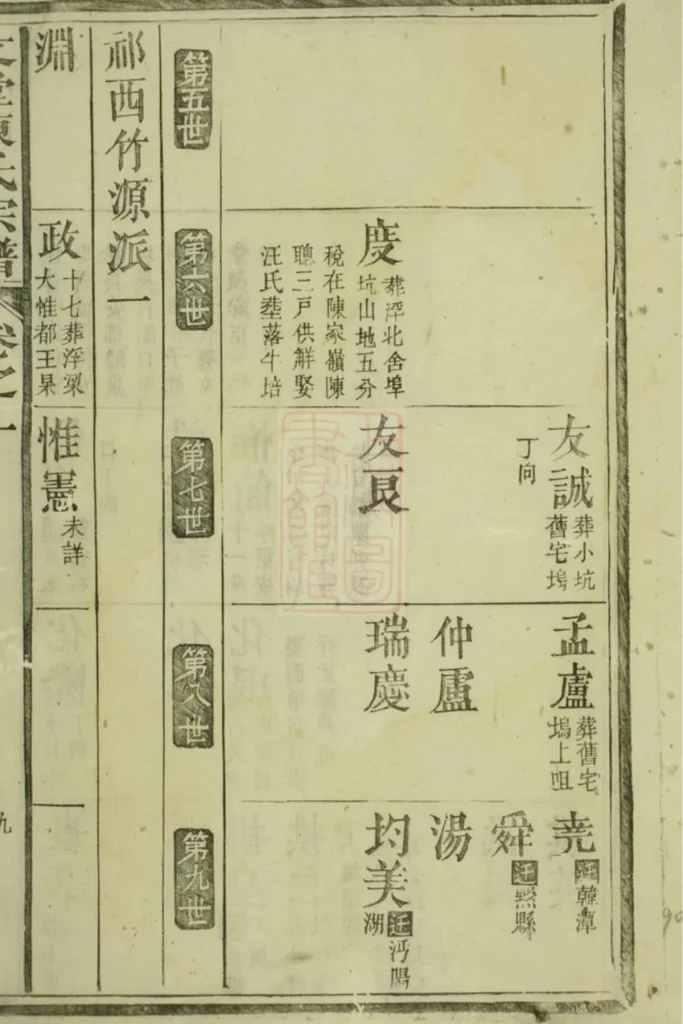 友誠
葬小坑
舊宅塢
丁向
孟盧
葬舊宅
塢上咀
仲盧
堯
迁韓潭
舜
迁黟縣
湯
度
葬浮北舍埠
坑山地五分
稅在陳家嶺陳
聰三戶供解娶
汪氏塟落牛培
友良
瑞慶
均美
迁沔陽
湖
第五世
第六世
第七世
第八世
第九世
祁西竹源派一
淵
政
十七葬浮梁
大惟都王杲
惟憲
未詳
文堂陳氏宗譜
卷之一
九